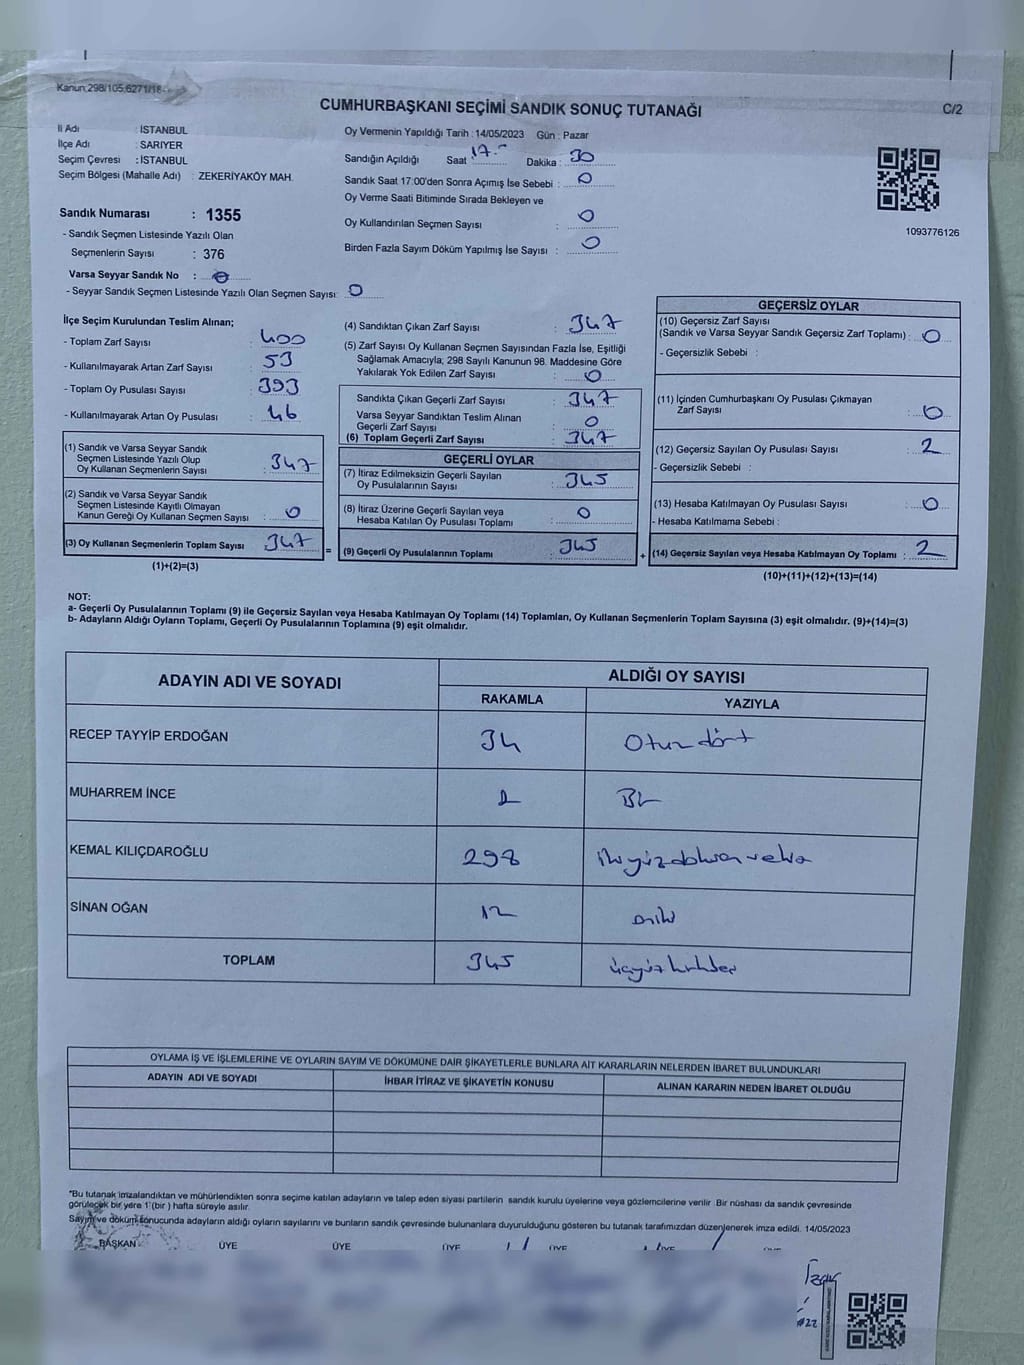 Kanun;298/105,6271/18-
CUMHURBAŞKANI SEÇİMİ SANDIK SONUÇ TUTANAĞI
C/2
İl Adı : İSTANBUL
İlçe Adı : SARIYER
Seçim Çevresi : İSTANBUL
Seçim Bölgesi (Mahalle Adı) : ZEKERİYAKÖY MAH.
Oy Vermenin Yapıldığı Tarih : 14/05/2023 Gün : Pazar
Sandığın Açıldığı Saat : 17.- Dakika : 30
Sandık Saat 17:00'den Sonra Açımış İse Sebebi : 0
Oy Verme Saati Bitiminde Sırada Bekleyen ve
Oy Kullandırılan Seçmen Sayısı : 0
Birden Fazla Sayım Döküm Yapılmış İse Sayısı : 0
1093776126
Sandık Numarası : 1355
- Sandık Seçmen Listesinde Yazılı Olan
Seçmenlerin Sayısı : 376
Varsa Seyyar Sandık No : 0
- Seyyar Sandık Seçmen Listesinde Yazılı Olan Seçmen Sayısı: 0
İlçe Seçim Kurulundan Teslim Alınan;
- Toplam Zarf Sayısı : 400
- Kullanılmayarak Artan Zarf Sayısı : 53
- Toplam Oy Pusulası Sayısı : 393
- Kullanılmayarak Artan Oy Pusulası : 46
(1) Sandık ve Varsa Seyyar Sandık
Seçmen Listesinde Yazılı Olup
Oy Kullanan Seçmenlerin Sayısı : 347
(2) Sandık ve Varsa Seyyar Sandık
Seçmen Listesinde Kayıtlı Olmayan
Kanun Gereği Oy Kullanan Seçmen Sayısı : 0
(3) Oy Kullanan Seçmenlerin Toplam Sayısı : 347
(1)+(2)=(3)
(4) Sandıktan Çıkan Zarf Sayısı : 347
(5) Zarf Sayısı Oy Kullanan Seçmen Sayısından Fazla İse, Eşitliği
Sağlamak Amacıyla; 298 Sayılı Kanunun 98. Maddesine Göre
Yakılarak Yok Edilen Zarf Sayısı : 0
Sandıkta Çıkan Geçerli Zarf Sayısı : 347
Varsa Seyyar Sandıktan Teslim Alınan
Geçerli Zarf Sayısı : 0
(6) Toplam Geçerli Zarf Sayısı : 347
GEÇERLİ OYLAR
(7) İtiraz Edilmeksizin Geçerli Sayılan
Oy Pusulalarının Sayısı : 345
(8) İtiraz Üzerine Geçerli Sayılan veya
Hesaba Katılan Oy Pusulası Toplamı : 0
= (9) Geçerli Oy Pusulalarının Toplamı : 345
GEÇERSİZ OYLAR
(10) Geçersiz Zarf Sayısı
(Sandık ve Varsa Seyyar Sandık Geçersiz Zarf Toplamı) : 0
- Geçersizlik Sebebi :
(11) İçinden Cumhurbaşkanı Oy Pusulası Çıkmayan
Zarf Sayısı : 0
(12) Geçersiz Sayılan Oy Pusulası Sayısı : 2
- Geçersizlik Sebebi :
(13) Hesaba Katılmayan Oy Pusulası Sayısı : 0
- Hesaba Katılmama Sebebi :
+ (14) Geçersiz Sayılan veya Hesaba Katılmayan Oy Toplamı : 2
(10)+(11)+(12)+(13)=(14)
NOT:
a- Geçerli Oy Pusulalarının Toplamı (9) ile Geçersiz Sayılan veya Hesaba Katılmayan Oy Toplamı (14) Toplamları, Oy Kullanan Seçmenlerin Toplam Sayısına (3) eşit olmalıdır. (9)+(14)=(3)
b- Adayların Aldığı Oyların Toplamı, Geçerli Oy Pusulalarının Toplamına (9) eşit olmalıdır.
ADAYIN ADI VE SOYADI
ALDIĞI OY SAYISI
RAKAMLA YAZIYLA
RECEP TAYYİP ERDOĞAN 34 Otuz dört
MUHARREM İNCE 1 Bir
KEMAL KILIÇDAROĞLU 298 ikiyüzdoksan sekiz
SİNAN OĞAN 12 oniki
TOPLAM 345 üçyüzkırkbeş
OYLAMA İŞ VE İŞLEMLERİNE VE OYLARIN SAYIM VE DÖKÜMÜNE DAİR ŞİKAYETLERLE BUNLARA AİT KARARLARIN NELERDEN İBARET BULUNDUKLARI
ADAYIN ADI VE SOYADI İHBAR İTİRAZ VE ŞİKAYETİN KONUSU ALINAN KARARIN NEDEN İBARET OLDUĞU
*Bu tutanak imzalandıktan ve mühürlendikten sonra seçime katılan adayların ve talep eden siyasi partilerin sandık kurulu üyelerine veya gözlemcilerine verilir. Bir nüshası da sandık çevresinde
görülecek bir yere 1 (bir ) hafta süreyle asılır.
Sayım ve döküm sonucunda adayların aldığı oyların sayılarını ve bunların sandık çevresinde bulunanlara duyurulduğunu gösteren bu tutanak tarafımızdan düzenlenerek imza edildi. 14/05/2023
BAŞKAN ÜYE ÜYE ÜYE ÜYE ÜYE